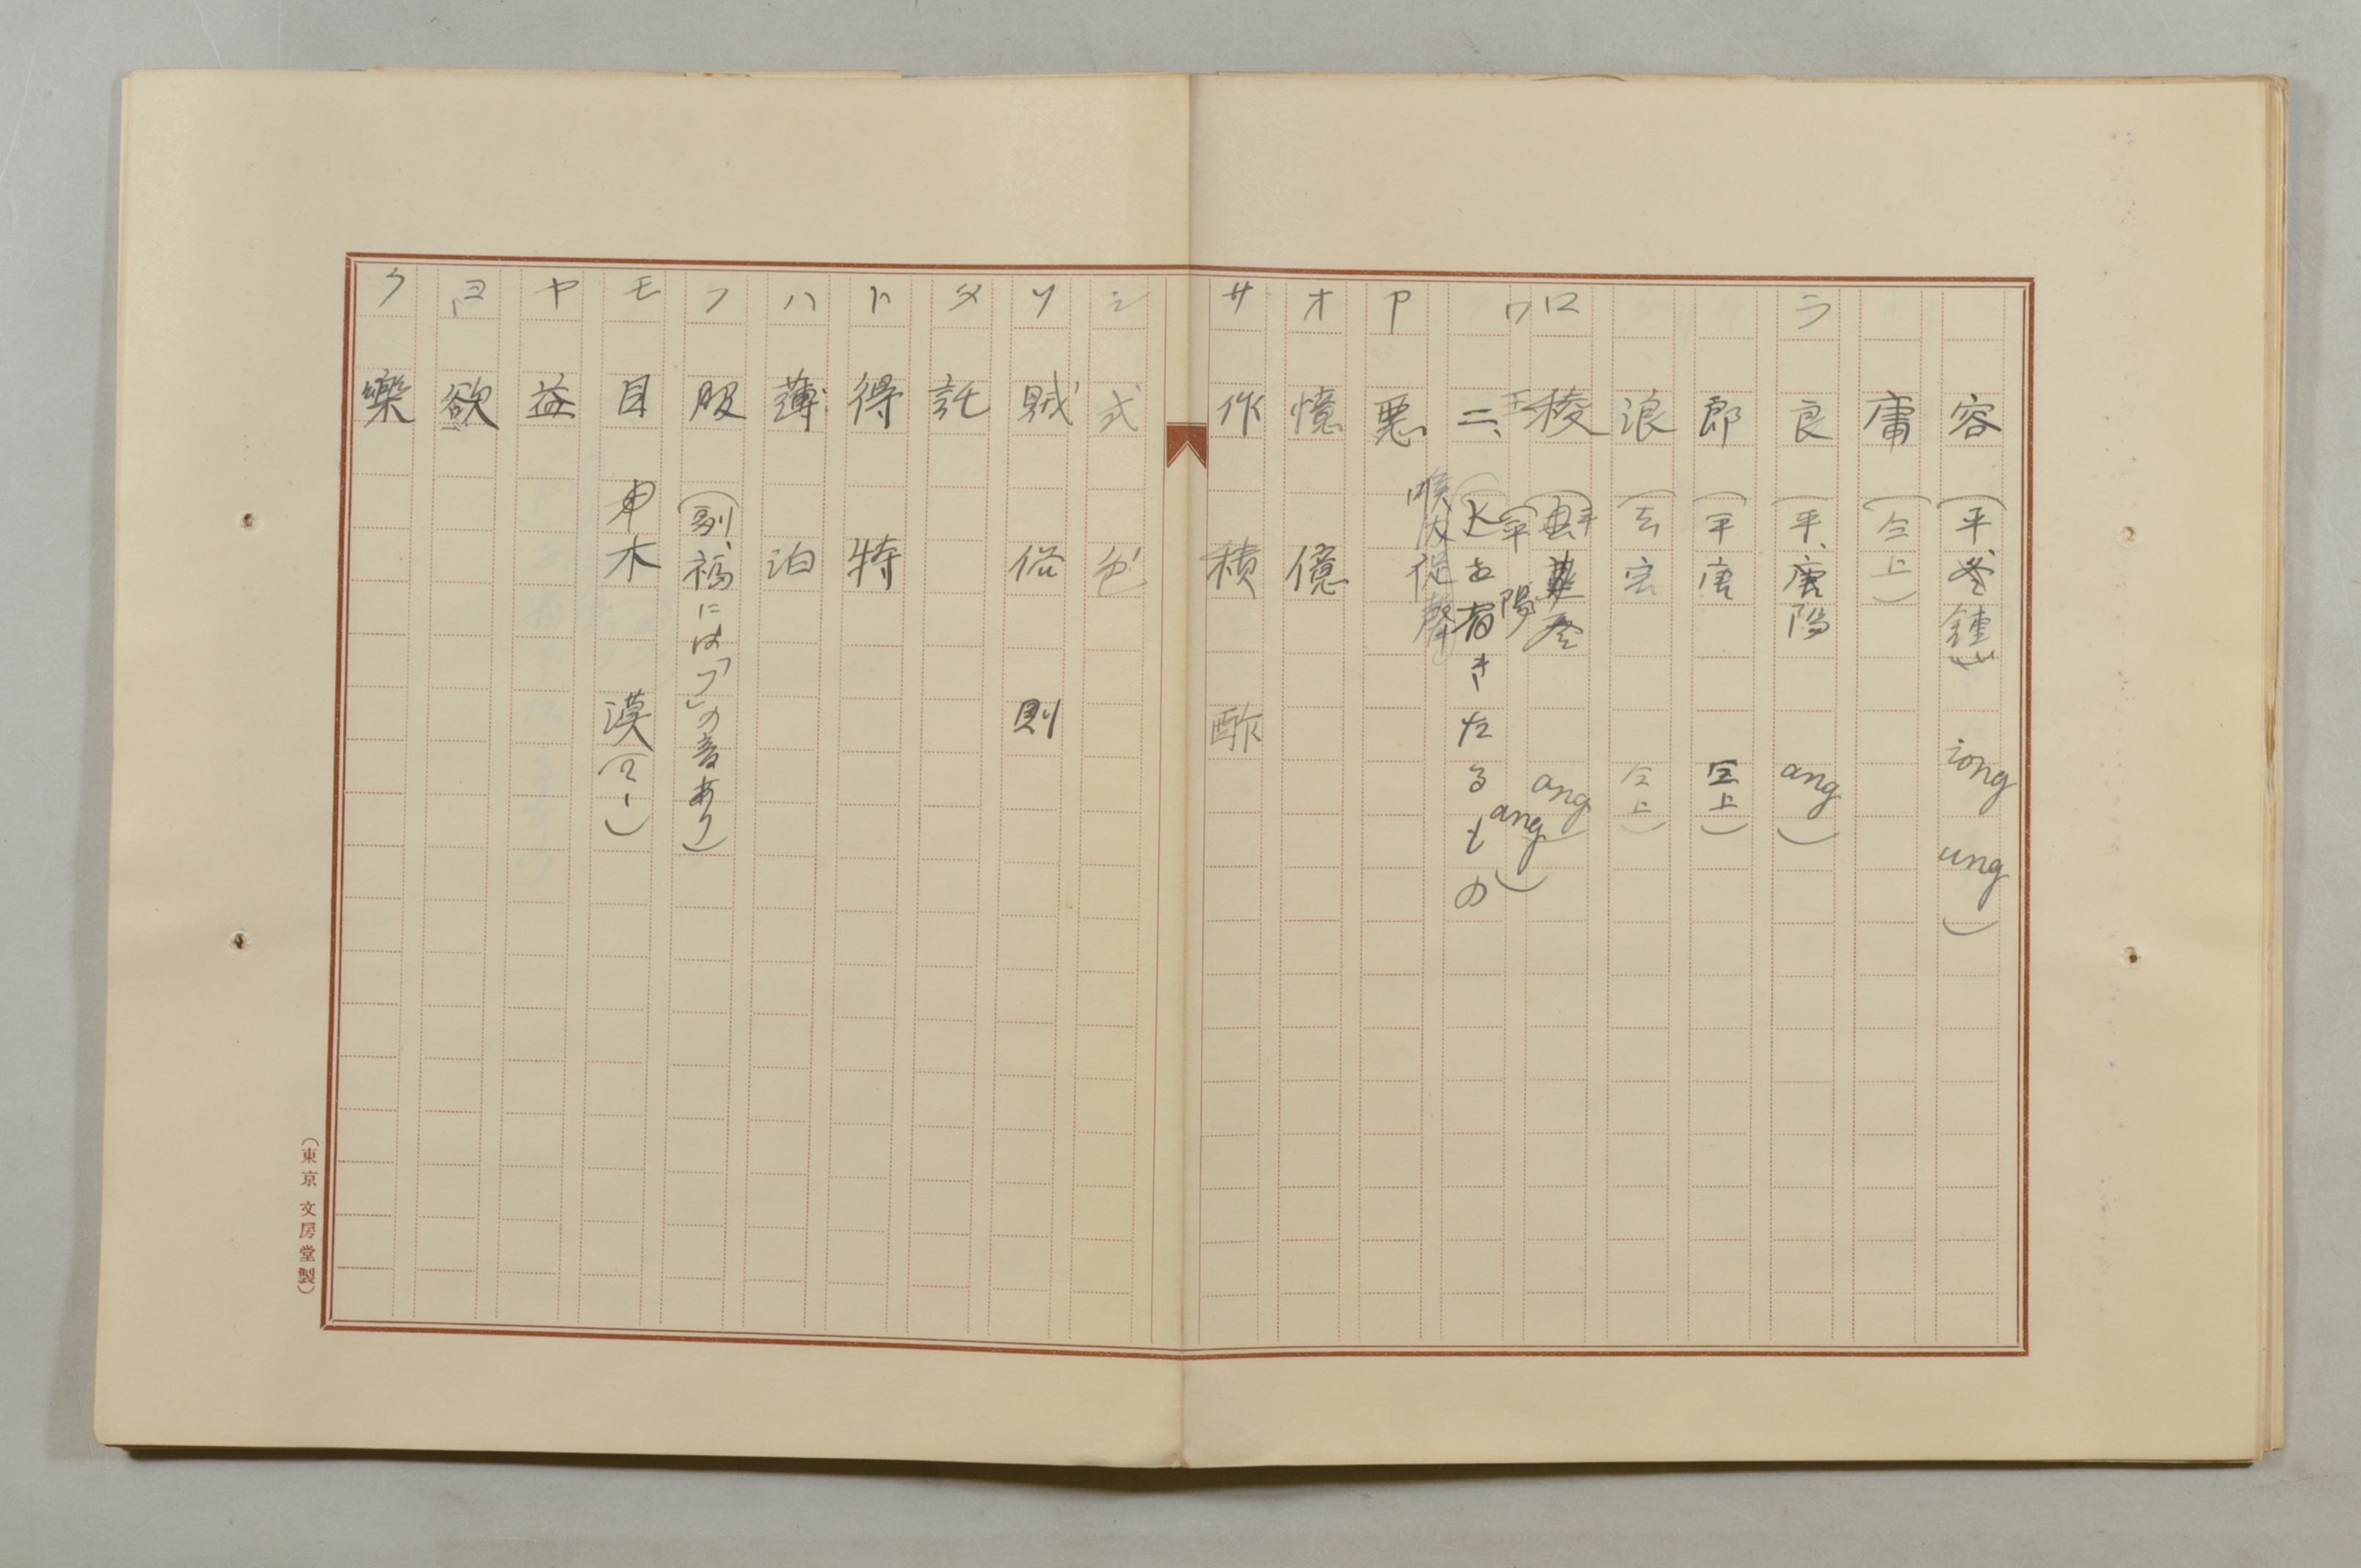 容（平、冬鍾 iong ung）
庸（仝上）
ラ 良（平、唐陽 ang）
郎（平唐 仝上）
浪（去宕 仝上）
ロ 稜（平 登 ang）
ワ 王（平 陽 ang）
二、Kを省きたるもの
（喉内従声）
ア 悪
オ 憶 億
サ 作 積 酢
シ 式 色
ソ 賊 俗 則
タ 託
ト 得 特
ハ 薄 泊
フ 服（副、福には「フ」の音あり）
モ 目 木 漠（マー）
ヤ 益
ヨ 欲
ラ 樂
（東京 文房堂製）